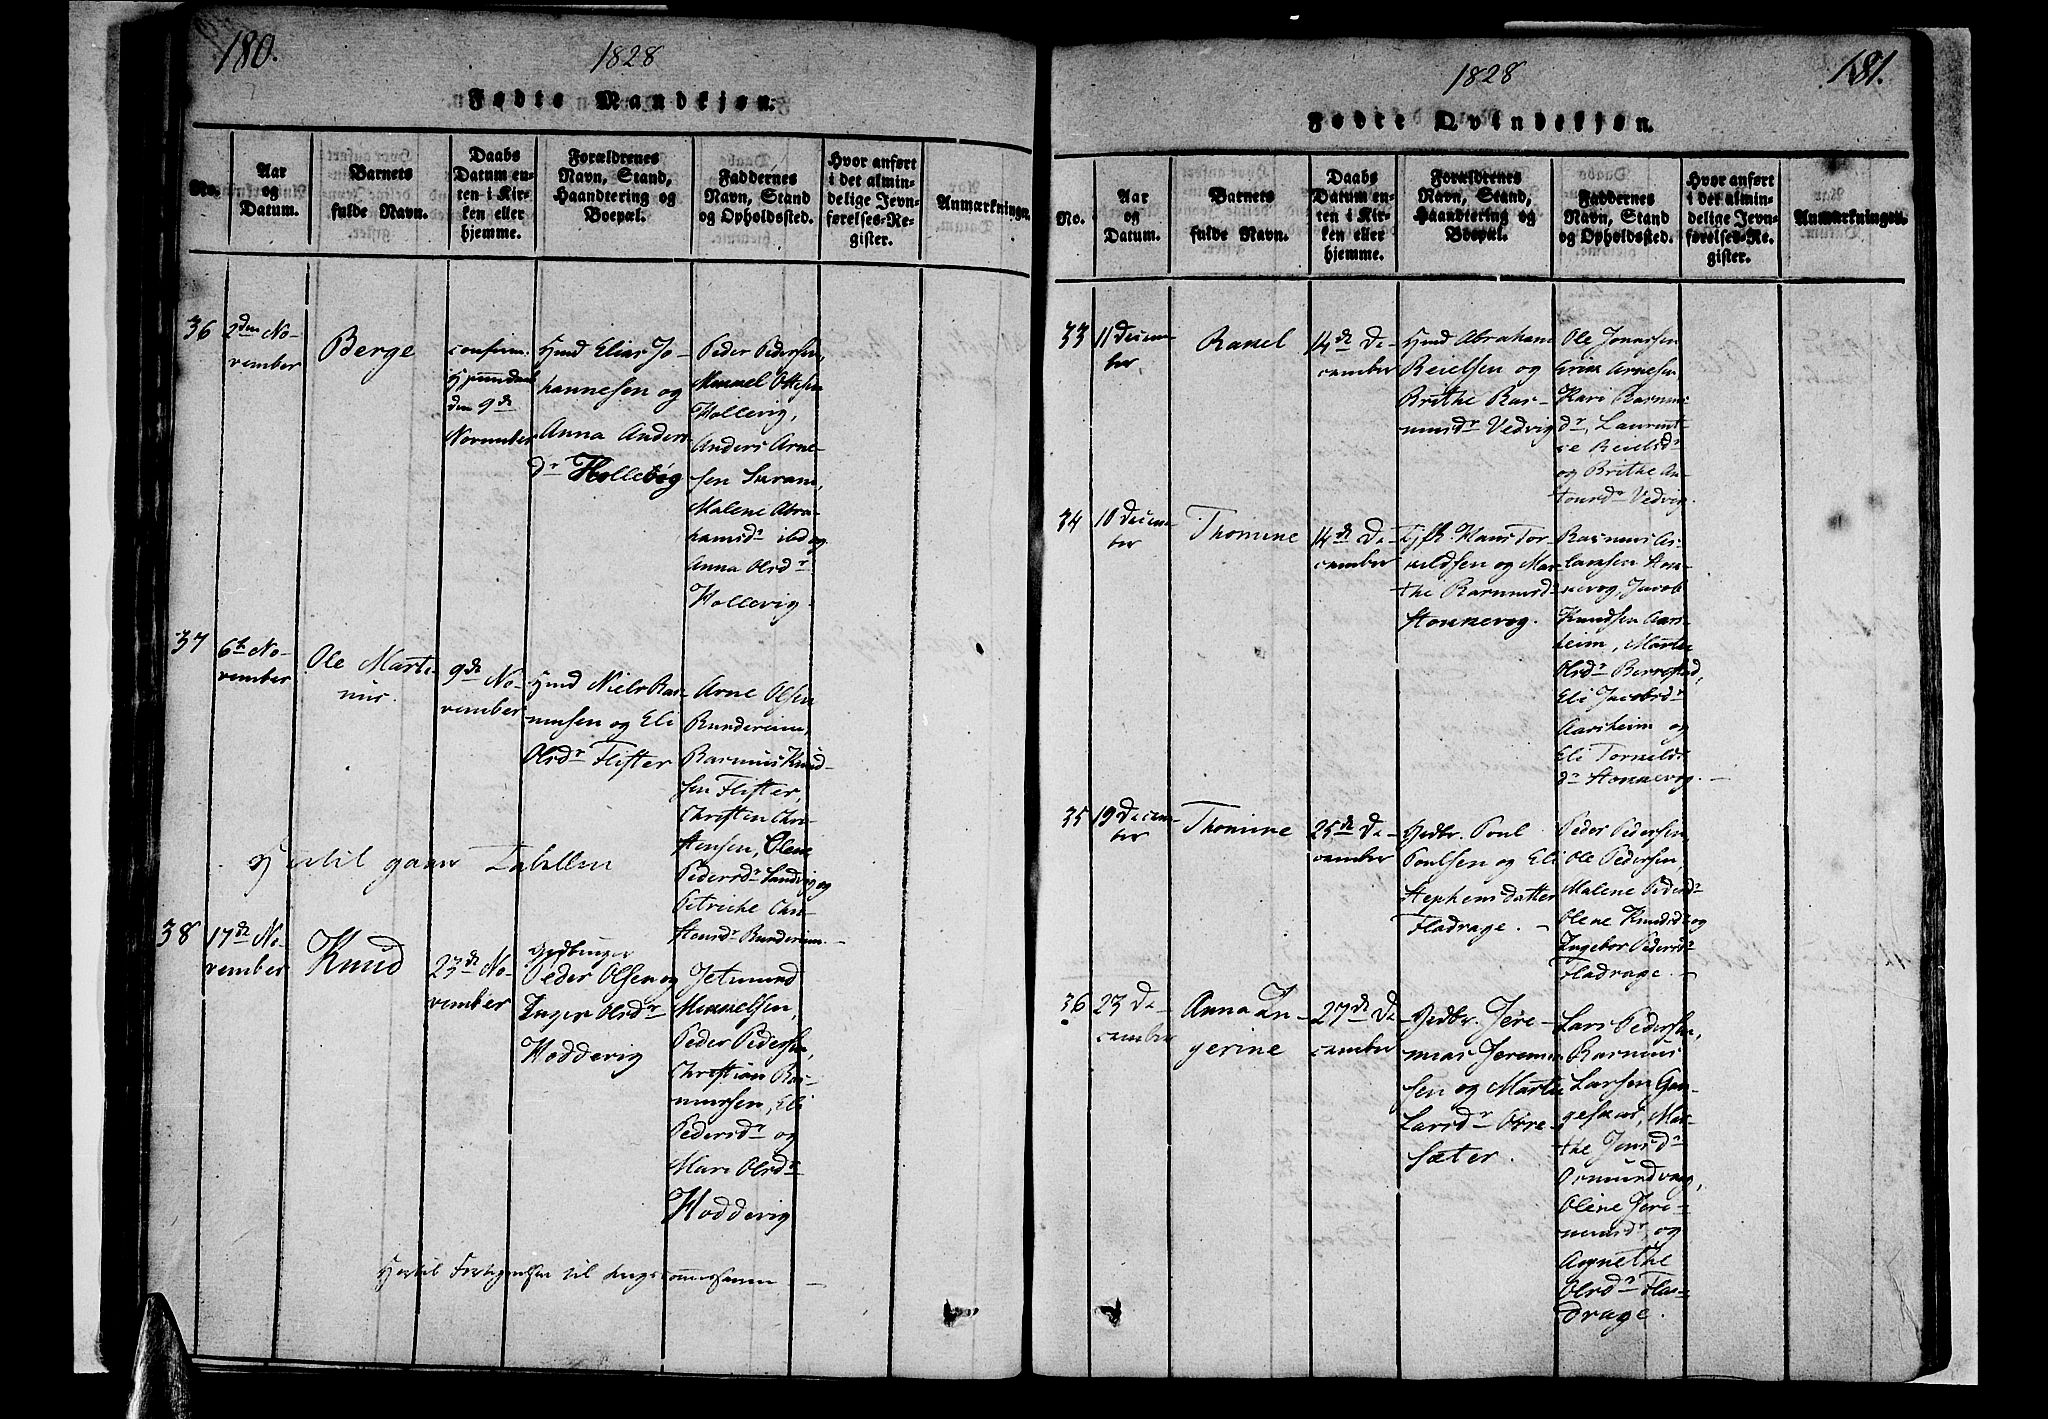 180.
1828
Fødte Mandkjøn.
No.
Aar
og
Datum.
Barnets
fulde Navn.
Daabs
Datum en-
ten i Kir-
ken eller
hjemme.
Forældrenes
Navn, Stand,
Haandtering og
Boepæl.
Faddernes
Navn, Stand
og Opholdssted.
Hvor anført
i det almin-
delige Jevn-
førelses-Re-
gister.
Anmærkninger.
36
2den No-
vember
Berge
confirm.
den 9de
November
Hmd Elias Jo-
hannesen og
Anna Anders
dr Hollevig
Peder Pedersen,
Mimmel Ottesen
Hollevig,
Anders Arne-
sen
Malene Abra-
hamsdr ibd og
Anna Olsdr
Hollevig
37
6te No-
vember
Ole Marti-
nus.
9de No-
vember
Hmd Niels Ras-
musen og Eli
Olsdr Flister
Arne Olsen
Rundereim,
Rasmus Knud-
sen Flister,
Christen Chri-
stensen, Olene
Pedersdr Sandvig og
Petriche Chri-
stensdr Rundereim.
Hertil gaaer Tabellen
38
17de No-
vember
Knud
23de No-
vember
Peder Olsen og
Inger Olsdr
Hoddevig
Jetmund
Mimmelsen,
Peder Pedersen,
Christian Ras-
mussen, Eli
Pedersdr og
Mari Olsdr
Hoddevig
Hertil Fortegnelsen til
181.
1828
Fødte Qvindekjøn.
No.
Aar
og
Datum.
Barnets
fulde Navn.
Daabs
Datum en-
ten i Kir-
ken eller
hjemme.
Forældrenes
Navn, Stand,
Haandtering og
Boepæl.
Faddernes
Navn, Stand
og Opholdssted.
Hvor anført
i det almin-
delige Jevn-
førelses-Re-
gister.
Anmærkninger.
33
11 Decem-
ber
Ranel
14de De-
cember
Hmd Abraham
Reielsen og
Brithe Ras-
musdr Vedvig
Ole Jonassen
Arnesen
Kari Rasmus
dr, Laurent-
se Reielsdr
og Brithe An-
tonsdr Vedvig.
34
10 Decem-
ber
Thomine
14de De-
cember
Hans Tor-
valdsen og Mar-
the Rasmusdr
Honnevog.
Rasmus As-
lacksen Hon-
nevog, Jacob
Knudsen Aars-
heim, Marthe
Olsdr Berrestad,
Eli Jacobsdr
Aarsheim og
Eli Torvalds
dr Honnevog.
35
19 Decem-
ber
Thomine
25de De-
cember
Gedbr. Poul
Poulsen og Eli
Stephensdatter
Fladrage.
Peder Pedersen,
Ole Pedersen,
Malene Pedersdr
Olene Knudsdr og
Ingebor Pedersdr
Fladrage.
36
23 De-
cember
Anna In-
gerine
27de De-
cember
Gedbr. Jere-
mias Jeremia-
sen og Marthe
Larsdr Ovre-
sæter.
Lars Pedersen,
Rasmus
Larsen Gan-
geskaar, Mar-
the Jensdr
Osmundvaag,
Olene Jere-
miasdr og
Agnethe
Olsdr Fla-
drage.